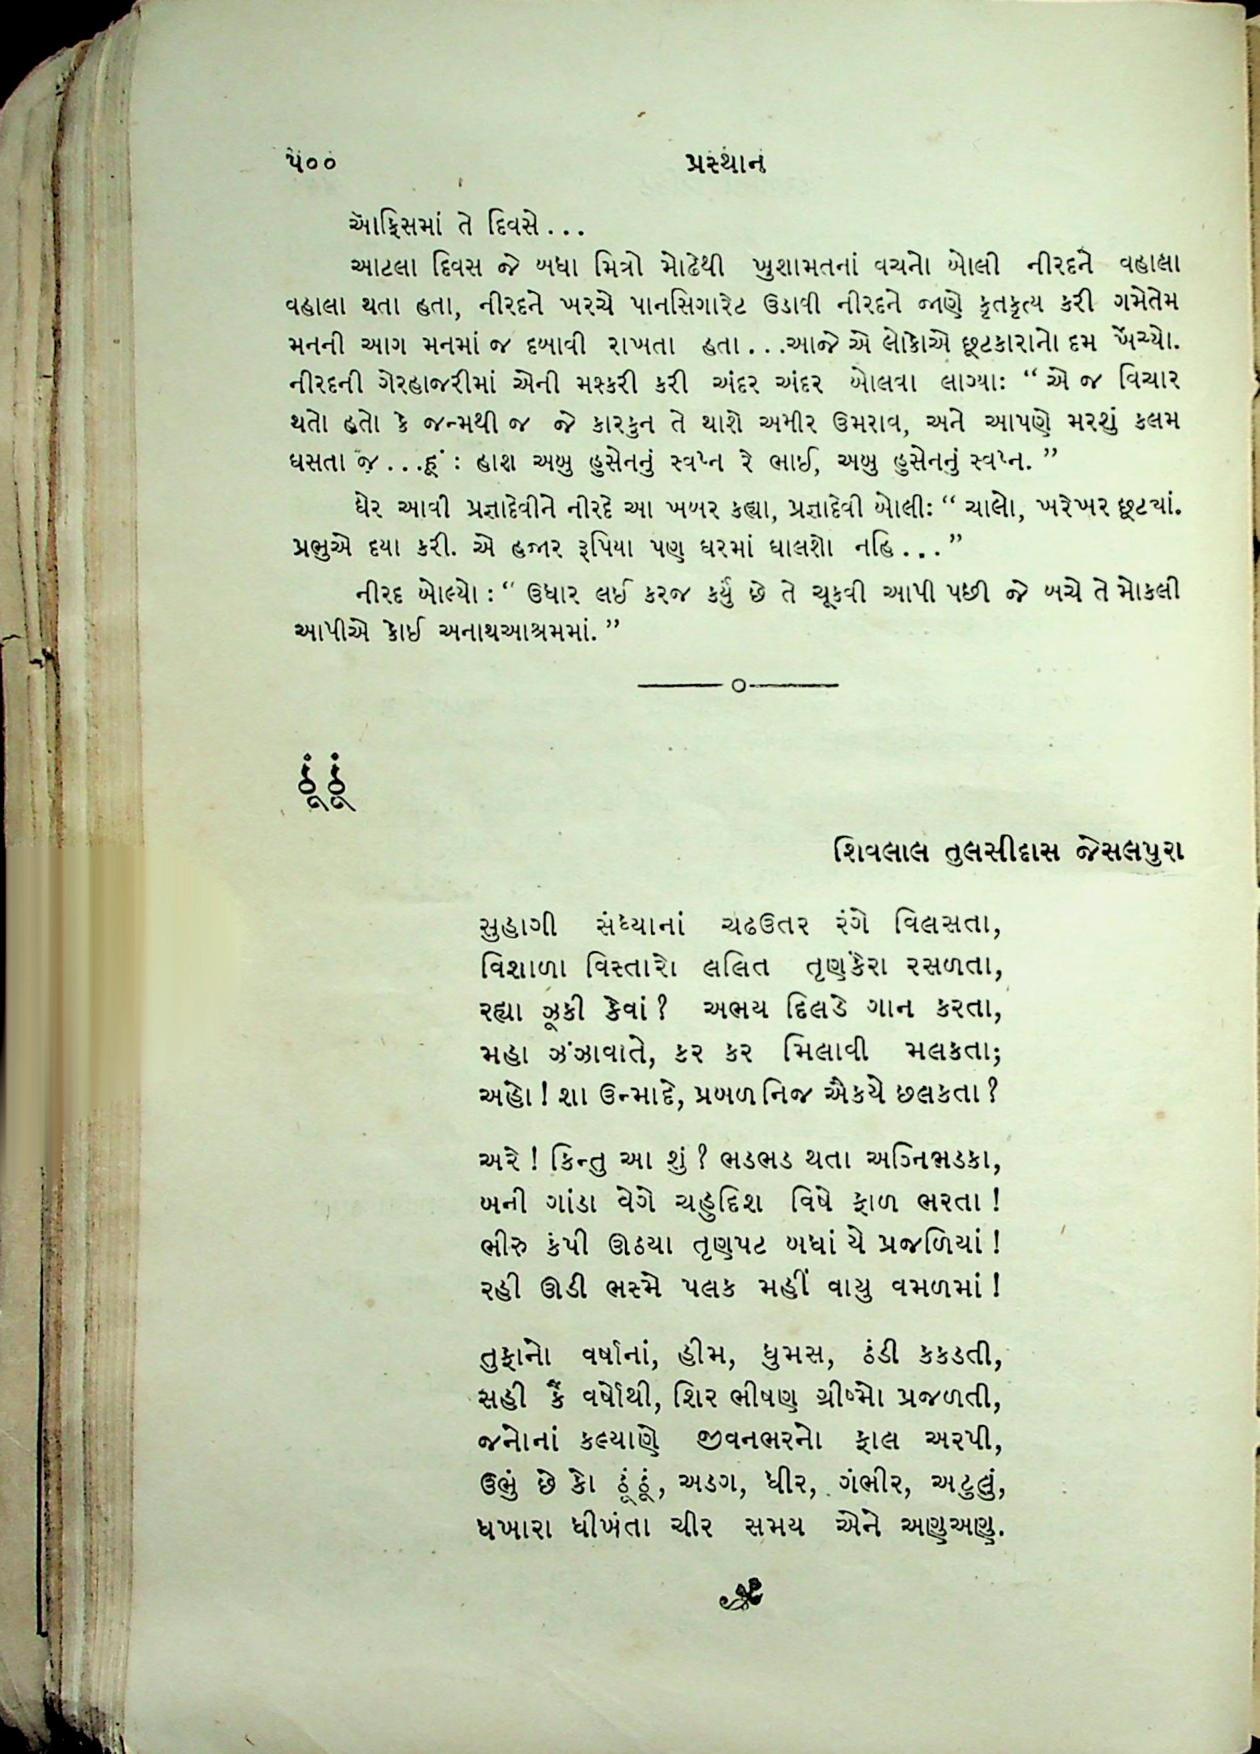 ૫૦૦ પ્રસ્થાન
ઑફિસમાં તે દિવસે...
આટલા દિવસ જે બધા મિત્રો મોઢેથી ખુશામતનાં વચનો બોલી નીરદને વહાલા
વહાલા થતા હતા, નીરદને ખરચે પાનસિગારેટ ઉડાવી નીરદને જાણે કૃતકૃત્ય કરી ગમેતેમ
મનની આગ મનમાં જ દબાવી રાખતા હતા...આજે એ લોકોએ છૂટકારાનો દમ ખેંચ્યો.
નીરદની ગેરહાજરીમાં એની મશ્કરી કરી અંદર અંદર બોલવા લાગ્યાઃ “ એ જ વિચાર
થતો હતો કે જન્મથી જ જે કારકુન તે થાશે અમીર ઉમરાવ, અને આપણે મરશું કલમ
ઘસતા જ...હૂં : હાશ અબુ હુસેનનું સ્વપ્ન રે ભાઈ, અબુ હુસેનનું સ્વપ્ન. ”
ઘેર આવી પ્રજ્ઞાદેવીને નીરદે આ ખબર કહ્યા, પ્રજ્ઞાદેવી બોલીઃ “ ચાલો, ખરેખર છૂટ્યાં.
પ્રભુએ દયા કરી. એ હજાર રૂપિયા પણ ઘરમાં ઘાલશો નહિ...”
નીરદ બોલ્યો : “ ઉધાર લઈ કરજ કર્યું છે તે ચૂકવી આપી પછી જે બચે તે મોકલી
આપીએ કોઈ અનાથઆશ્રમમાં. ”
ઠૂંઠૂં
શિવલાલ તુલસીદાસ જેસલપુરા
સુહાગી સંધ્યાનાં ચઢઉતર રંગે વિલસતા,
વિશાળા વિસ્તારો લલિત તૃણકેરા રસળતા,
રહ્યા ઝૂકી કેવાં? અભય દિલડે ગાન કરતા,
મહા ઝંઝાવાતે, કર કર મિલાવી મલકતા;
અહો ! શા ઉન્માદે, પ્રબળ નિજ ઐક્યે છલકતા ?
અરે ! કિન્તુ આ શું ? ભડભડ થતા અગ્નિભડકા,
બની ગાંડા વેગે ચહુદિશ વિષે ફાળ ભરતા !
ભીરુ કંપી ઊઠયા તૃણપટ બધાં યે પ્રજળિયાં !
રહી ઊડી ભસ્મે પલક મહીં વાયુ વમળમાં !
તુફાનો વર્ષાનાં, હીમ, ધુમસ, ઠંડી કકડતી,
સહી કૈં વર્ષોથી, શિર ભીષણ ગ્રીષ્મો પ્રજળતી,
જનોનાં કલ્યાણે જીવનભરનો ફાલ અરપી,
ઉભું છે કો ઠૂંઠૂં, અડગ, ધીર, ગંભીર, અટુલું,
ધખારા ધીખંતા ચીર સમય એને અણુઅણુ.